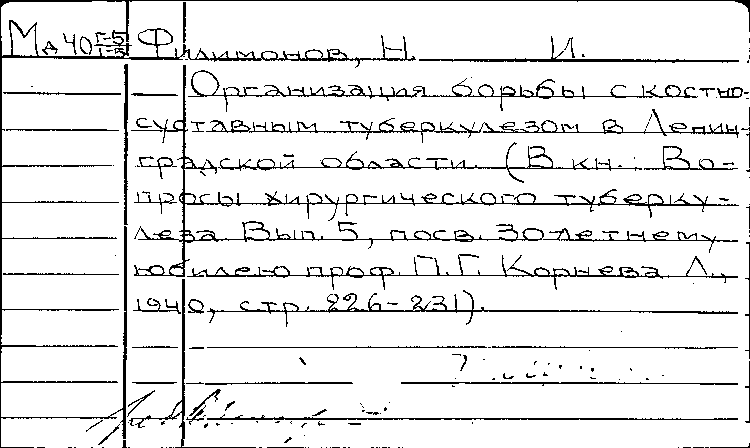 Мд40 Г-5/Г-5 Филимонов, Н. И.
Организация борьбы с костно-
суставным туберкулезом в Ленин-
градской области. (В кн.: Во-
просы хирургического туберку-
леза Вып. 5, посв. 30-летнему
юбилею проф. П.Г. Корнева Л.,
1940, стр. 226-231).